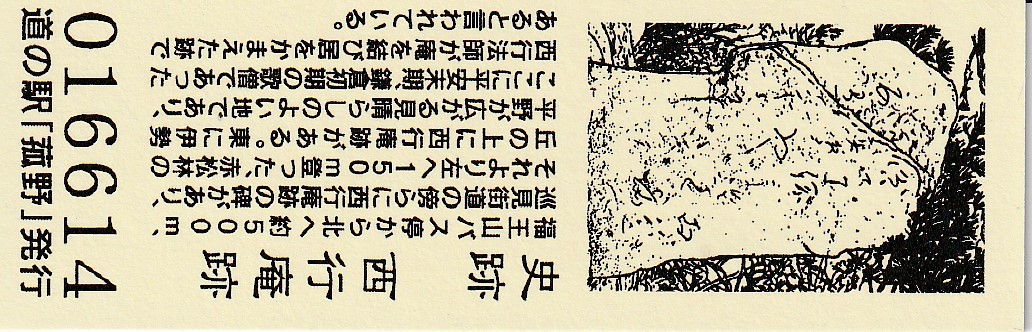 史跡 西行庵跡
福王山バス停から北へ約500m、
巡見街道の傍らに西行庵跡の碑があり、
それより左へ150m登った、赤松林の
丘の上に西行庵跡がある。東に伊勢
平野が広がる見晴らしのよい地であり、
ここに平安末期、鎌倉初期の歌僧であった
西行法師が庵を結び居をかまえた跡で
あると言われている。
016614
道の駅「菰野」発行